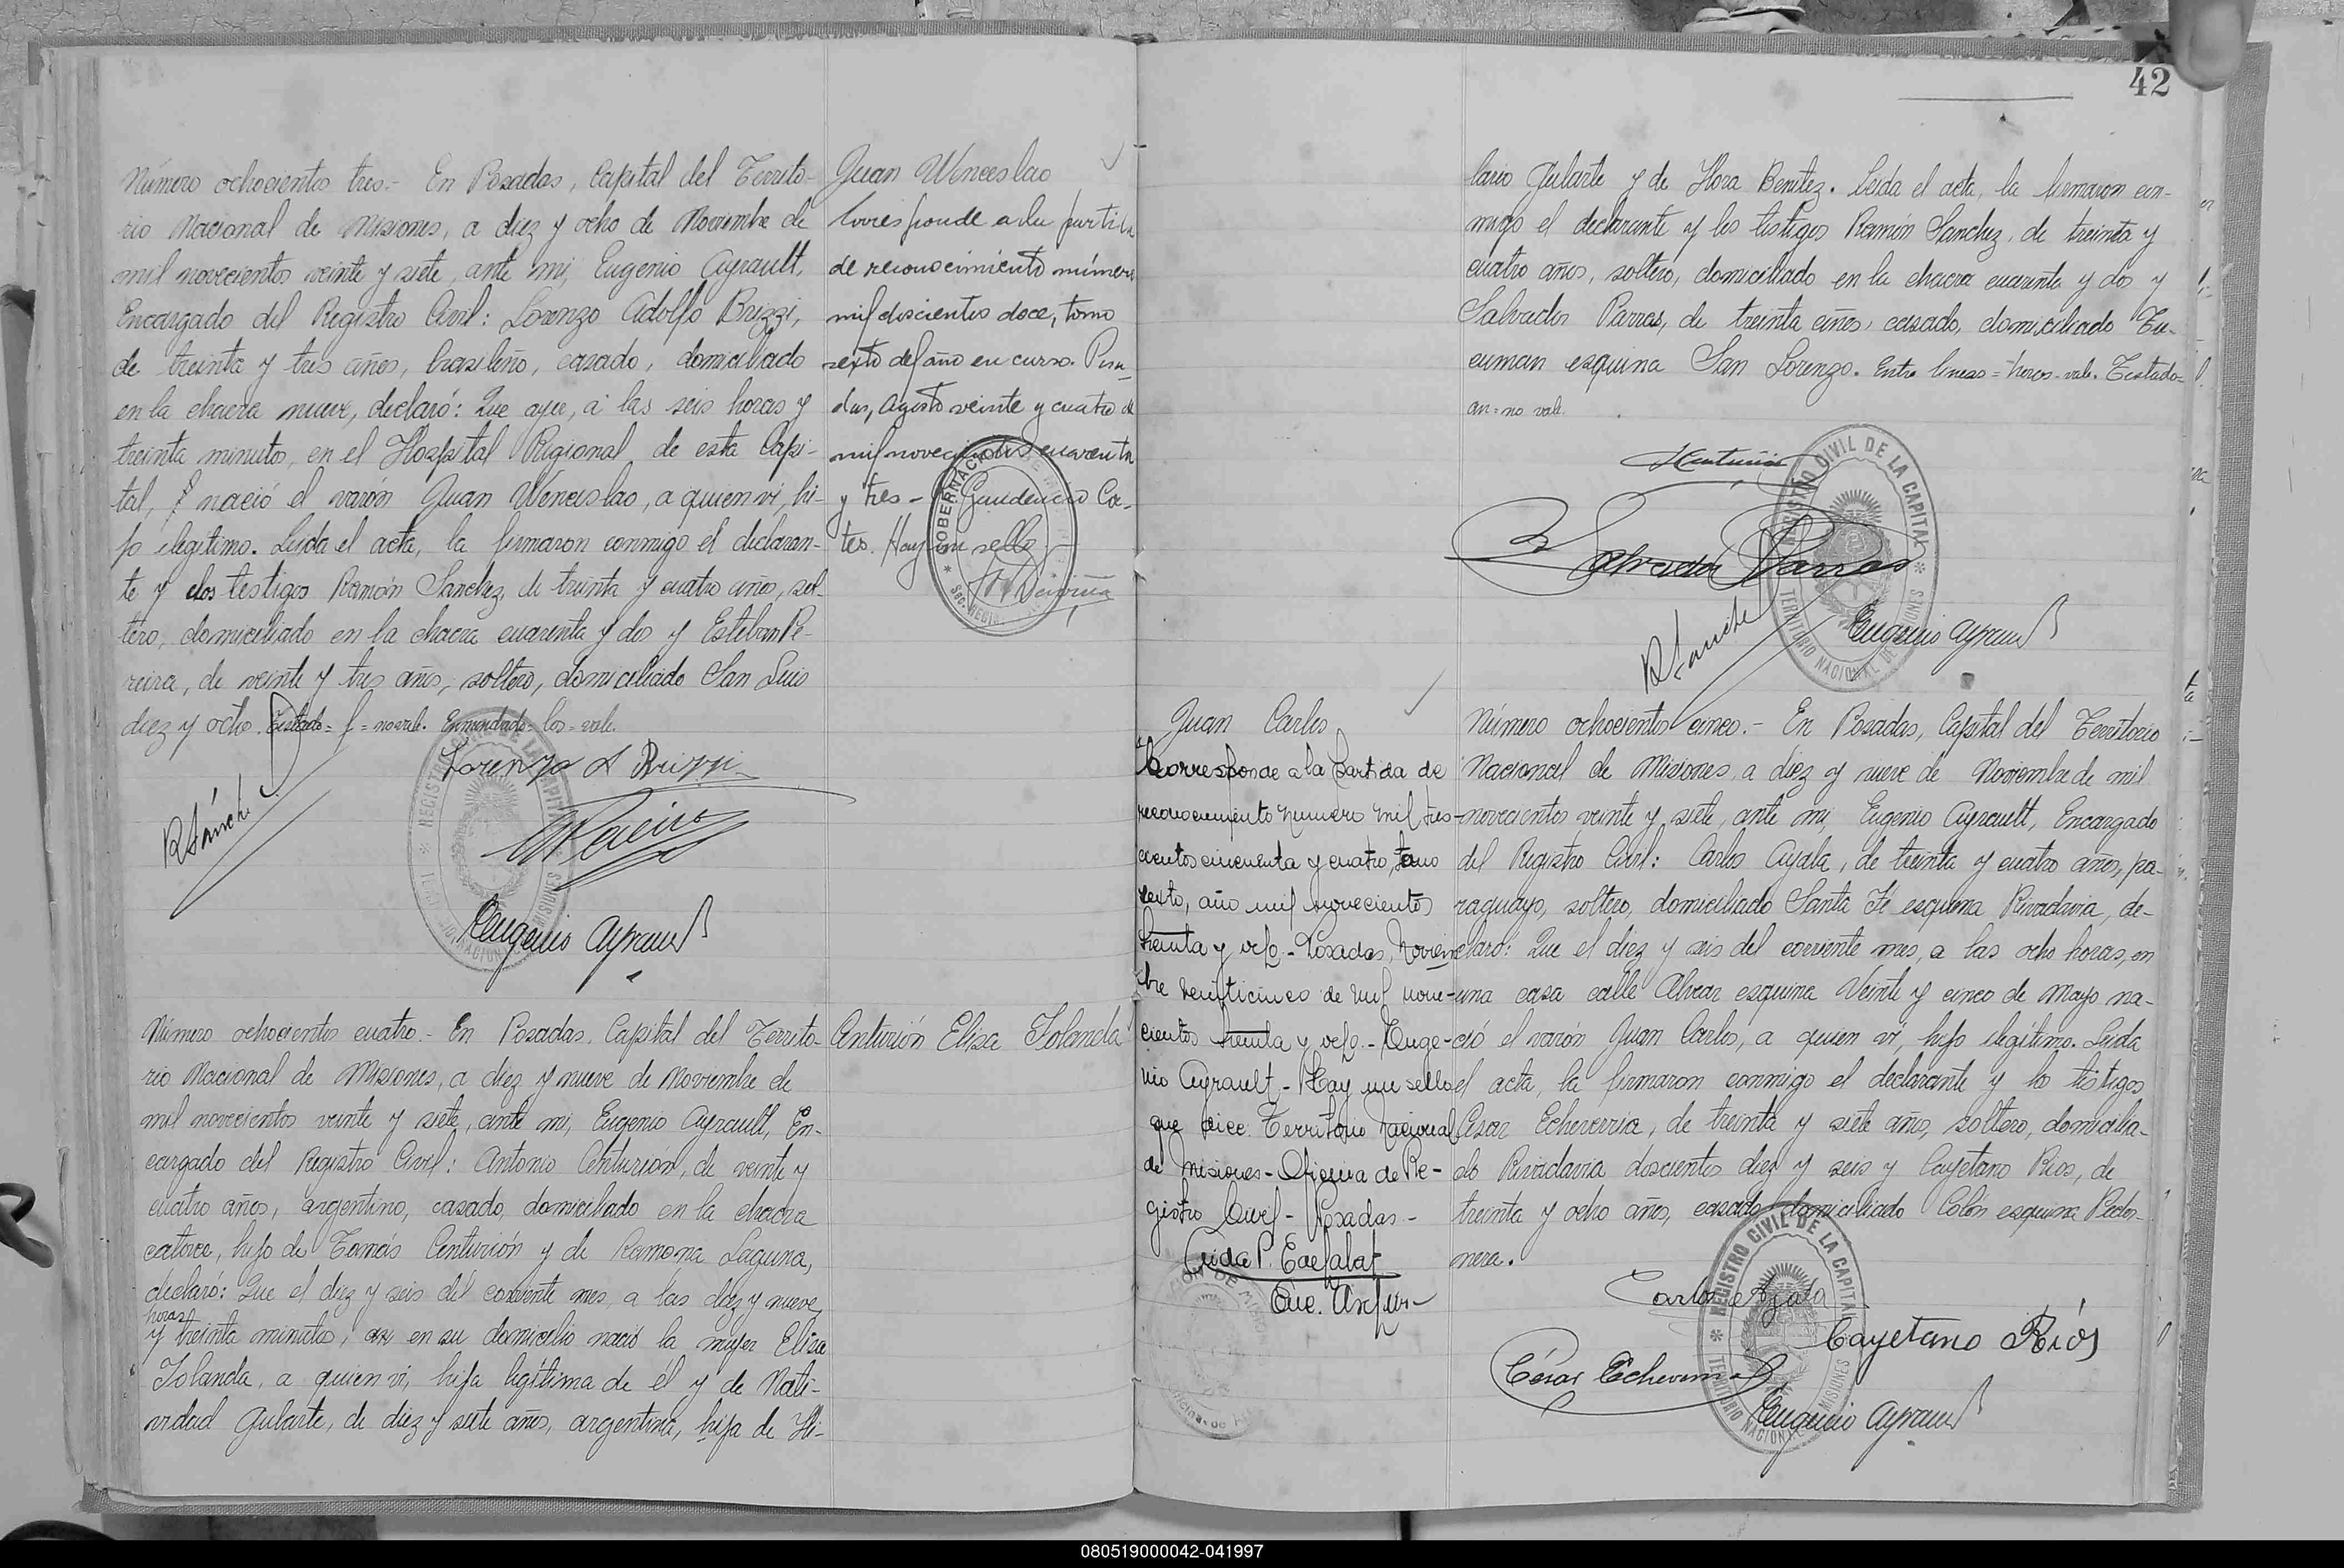 Número ochocientos tres.- En Posadas, Capital del Territo-
rio Nacional de Misiones, a diez y ocho de Noviembre de
mil novecientos veinte y siete, ante mi, Eugenio Ayrault,
Encargado del Registro Civil: Lorenzo Adolfo Brizzi,
de treinta y tres años, brasileño, casado, domiciliado
en la chacra nueve, declaró: Que ayer, a las seis horas y
treinta minutos, en el Hospital Regional de esta Capi-
tal, f nació el varón Juan Wenceslao, a quien vi, hi-
jo ilegítimo. Leida el acta, la firmaron conmigo el declaran-
te y los testigos Ramón Sanchez, de treinta y cuatro años, sol-
tero, domiciliado en la chacra cuarenta y dos y Esteban Pe-
reira, de veinte y tres años, soltero, domiciliado San Luis
diez y ocho. Testado= f = no vale. Enmendado= los= vale.
Lorenzo A Brizzi
R Sánchez
EPereira
Eugenio Ayrault
Juan Wenceslao
Corresponde a la partida
de reconocimiento número
mil doscientos doce, tomo
sexto del año en curso. Posa-
das, Agosto veinte y cuatro de
mil novecientos cuarenta
y tres - Gaudencio Co-
tes. Hay un sello
GOBERNACION
Número ochocientos cuatro.- En Posadas, Capital del Territo-
rio Nacional de Misiones, a diez y nueve de Noviembre de
mil novecientos veinte y siete, ante mi, Eugenio Ayrault, En-
cargado del Registro Civil: Antonio Centurión, de veinte y
cuatro años, argentino, casado, domiciliado en la chacra
catorce, hijo de Tomás Centurión y de Ramona Laguna,
declaró: Que el diez y seis del corriente mes, a las diez y nueve
horas
y treinta minutos, an en su domicilio nació la mujer Elisa
Iolanda, a quien vi, hija legítima de él y de Nati-
vidad Gularte, de diez y siete años, argentina, hija de Hi-
Centurión Elisa Iolanda
42
lario Gularte y de Flora Benitez. Leida el acta, la firmaron con-
migo el declarante y los testigos Ramón Sanchez, de treinta y
cuatro años, soltero, domiciliado en la chacra cuarenta y dos y
Salvador Parras, de treinta años, casado, domiciliado Tu-
cuman esquina San Lorenzo. Entre lineas = horas- vale. Testado=
an= no vale.
Salvador Parras
R Sanchez
REGISTRO CIVIL DE LA CAPITAL
TERRITORIO NACIONAL DE MISIONES
Eugenio Ayrault
Juan Carlos
Corresponde a la partida de
reconocimiento número mil tres-
cientos cincuenta y cuatro, tomo
sexto, año mil novecientos
treinta y ocho.- Posadas, Noviem-
bre veinticinco de mil nove-
cientos treinta y ocho.- Euge-
nio Ayrault.- Hay un sello
que dice: Territorio Nacional
de Misiones- Oficina de Re-
gistro Civil- Posadas-
Número ochocientos cinco.- En Posadas, Capital del Territorio
Nacional de Misiones, a diez y nueve de Noviembre de mil
novecientos veinte y siete, ante mi, Eugenio Ayrault, Encargado
del Registro Civil: Carlos Ayala, de treinta y cuatro años, pa-
raguayo, soltero, domiciliado Santa Fe esquina Rivadavia, de-
claró: Que el diez y seis del corriente mes, a las ocho horas, en
una casa calle Alvear esquina Veinte y cinco de Mayo na-
ció el varón Juan Carlos, a quien vi, hijo ilegítimo. Leida
el acta, la firmaron conmigo el declarante y los testigos
Cesar Echeverria, de treinta y siete años, soltero, domicilia-
do Rivadavia doscientos diez y seis y Cayetano Rios, de
treinta y ocho años, casado, domiciliado Colón esquina Peder-
nera.
Carlos Ayala
Cayetano Ríos
César Echeverria
REGISTRO CIVIL DE LA CAPITAL
TERRITORIO NACIONAL DE MISIONES
Eugenio Ayrault
080519000042-041997